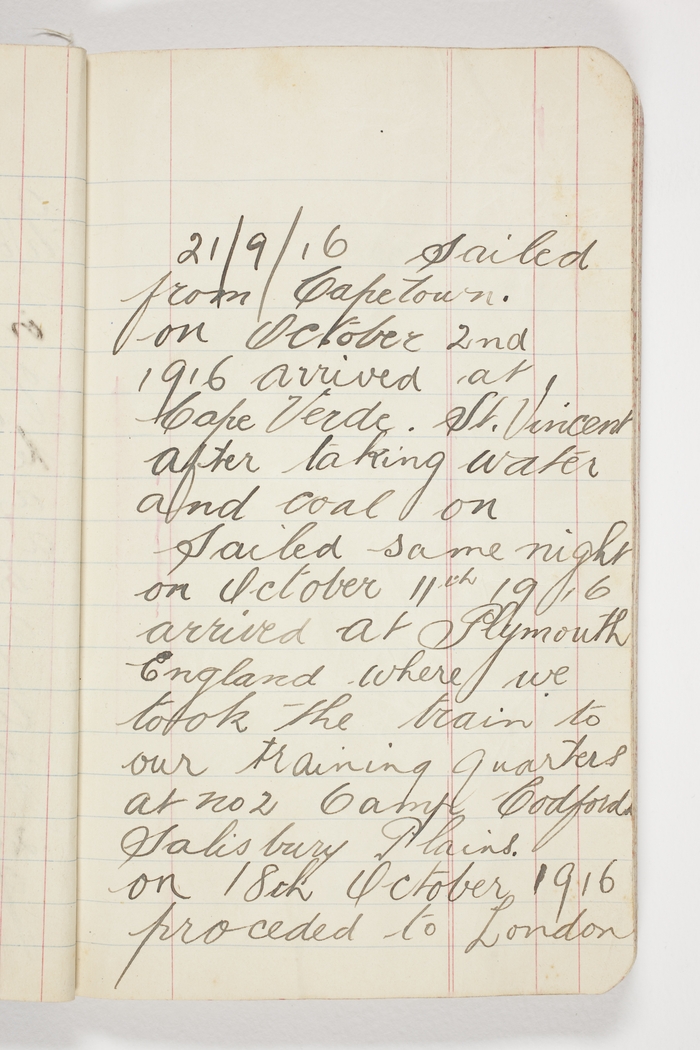 21/9/16 Sailed
from Capetown.
on October 2nd
1916 arrived at
Cape Verde. St. Vincent
after taking water
and coal on
Sailed same night
on October 11th 1916
arrived at Plymouth
England where we
took the train to
our training quarters
at no 2 Camp Codford
Salisbury Plains.
on 18th October 1916
proceded to London